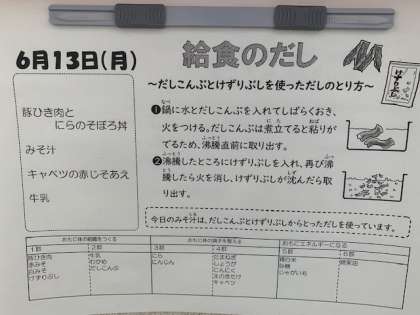 6月13日(月)
給食のだし
けずりぶし
～だしこんぶとけずりぶしを使っただしのとり方～
豚ひき肉と
にらのそぼろ丼
みそ汁
キャベツの赤じそあえ
牛乳
❶鍋に水とだしこんぶを入れてしばらくおき、
火をつける。だしこんぶは煮立てると粘りが
でるため、沸騰直前に取り出す。
❷沸騰したところにけずりぶしを入れ、再び沸
騰したら火を消し、けずりぶしが沈んだら取
り出す。
今日のみそ汁は、だしこんぶとけずりぶしからとっただしを使っています。
おもに体の組織をつくる
おもに体の調子を整える
おもにエネルギーになる
1群
2群
3群
4群
5群
6群
豚ひき肉
赤みそ
白みそ
けずりぶし
牛乳
わかめ
だしこんぶ
にら
にんじん
たまねぎ
しょうが
にんにく
えのきたけ
キャベツ
精白米
砂糖
じゃがいも